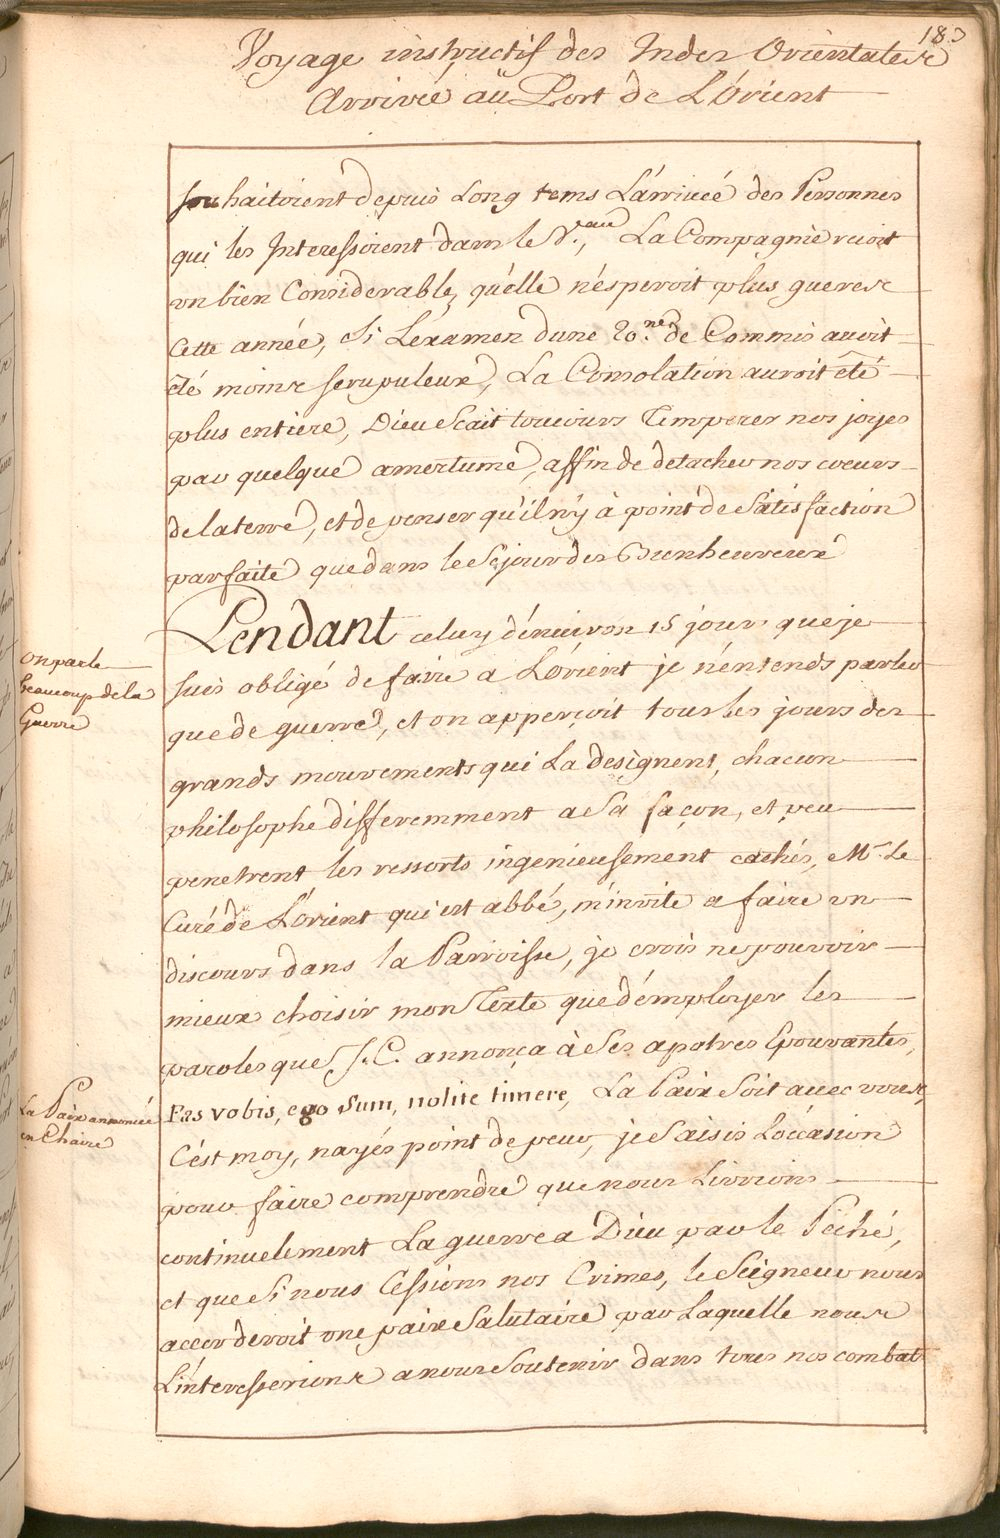 183
Voyage instructif des Indes Orientales
Arrivée au Port de L'Orient
souhaitoient depuis Long tems L'arrivée des Personnes
qui les Interessoient dans le V.eau, La Compagnie recoit
un bien Considerable, qu'elle n'esperoit plus gueres
Cette année, Si L'examen d'une 20.ne de Commis avoit
été moins scrupuleux, La Consolation auroit été
plus entiere, Dieu Scait toujours Temperer nos joyes
par quelque amertume, affin de detacher nos coeurs
de la terre, et de penser qu'il n'y à point de Satisfaction
parfaite que dans le Sejour des Bienheureux
Pendant celuy d'environ 15 jours que je
suis obligé de faire a L'orient je n'entends parler
que de guerre, et on apperçoit tous les jours des
grands mouvements qui La designent, chacun
philosophe differemment a Sa façon, et peu
penetrent les ressorts ingenieusement cachés, Mr. Le
Curé de L'orient qui est abbé, m'invite a faire un
discours dans la Parroisse, je crois ne pouvoir
mieux choisir mon Texte que d'employer les
paroles que J. C. annonça à Ses apotres Epouvantés,
Pas vobis, ego sum, nolite timere, La Paix Soit avec vous,
C'est moy, n'ayés point de peur, je Saisis L'occasion
pour faire comprendre que nous Livrions
continuelement La guerre a Dieu par le Peché,
et que Si nous Cessions nos Crimes, le Seigneur nous
accorderoit une paix Salutaire par Laquelle nous
L'interesserions a nous Soutenir dans tous nos combats
on parle
beaucoup de la
Guerre
La Paix annoncée
en Chaire